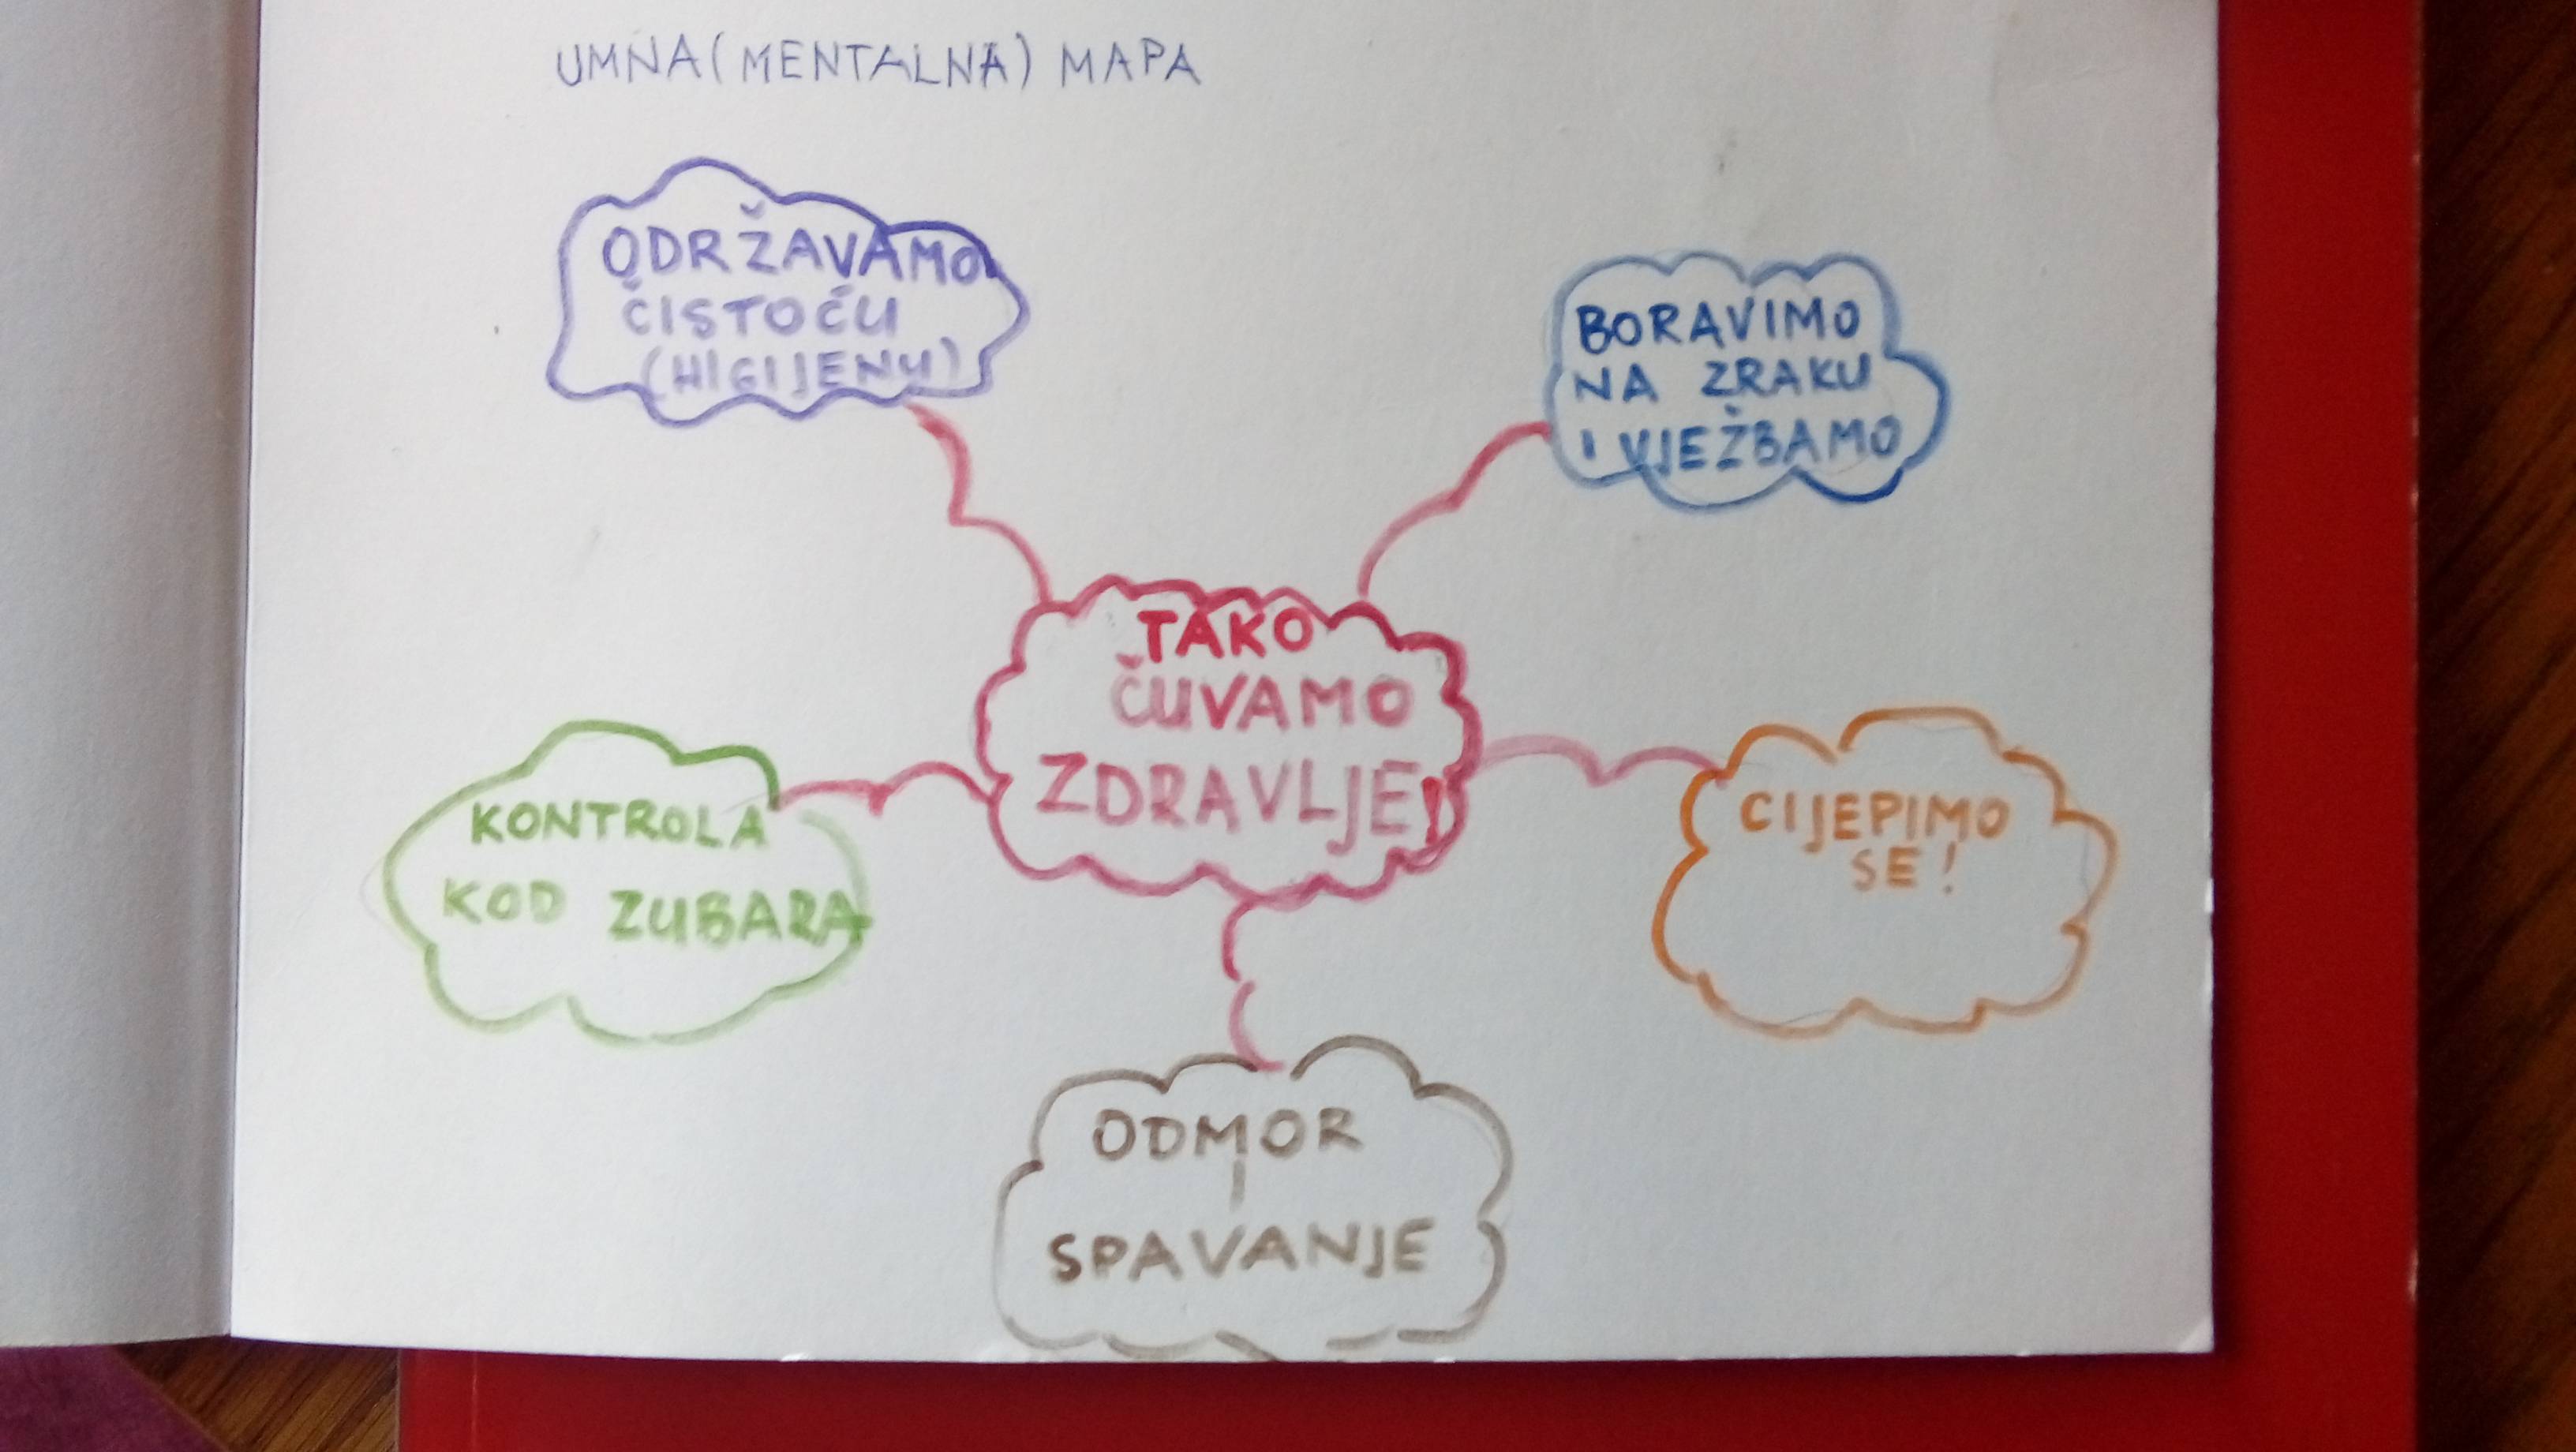 UMNA (MENTALNA) MAPA
ODRŽAVAMO
ČISTOĆU
(HIGIJENU)
BORAVIMO
NA ZRAKU
I VJEŽBAMO
TAKO
ČUVAMO
ZDRAVLJE!
KONTROLA
KOD ZUBARA
CIJEPIMO
SE!
ODMOR
I
SPAVANJE